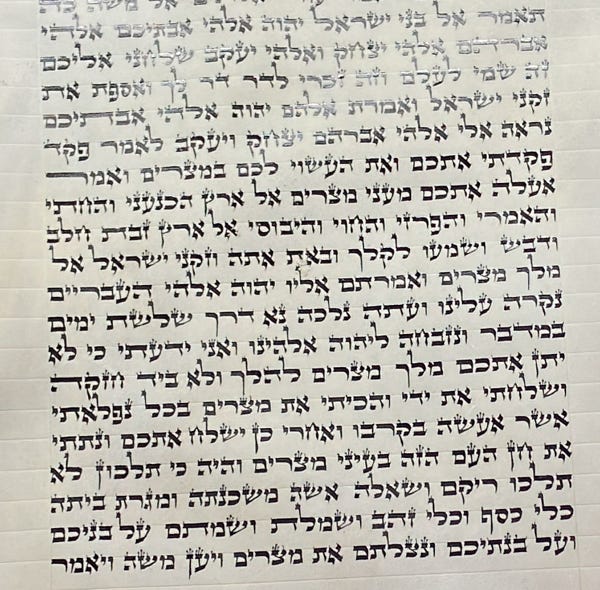 אל משה כה
תאמר אל בני ישראל יהוה אלהי אבתיכם אלהי
אברהם אלהי יצחק ואלהי יעקב שלחני אליכם
זה שמי לעלם וזה זכרי לדר דר לך ואספת את
זקני ישראל ואמרת אלהם יהוה אלהי אבתיכם
נראה אלי אלהי אברהם יצחק ויעקב לאמר פקד
פקדתי אתכם ואת העשוי לכם במצרים ואמר
אעלה אתכם מעני מצרים אל ארץ הכנעני והחתי
והאמרי והפרזי והחוי והיבוסי אל ארץ זבת חלב
ודבש ושמעו לקלך ובאת אתה וזקני ישראל אל
מלך מצרים ואמרתם אליו יהוה אלהי העבריים
נקרה עלינו ועתה נלכה נא דרך שלשת ימים
במדבר ונזבחה ליהוה אלהינו ואני ידעתי כי לא
יתן אתכם מלך מצרים להלך ולא ביד חזקה
ושלחתי את ידי והכיתי את מצרים בכל נפלאתי
אשר אעשה בקרבו ואחרי כן ישלח אתכם ונתתי
את חן העם הזה בעיני מצרים והיה כי תלכון לא
תלכו ריקם ושאלה אשה משכנתה ומגרת ביתה
כלי כסף וכלי זהב ושמלת ושמתם על בניכם
ועל בנתיכם ונצלתם את מצרים ויען משה ויאמר